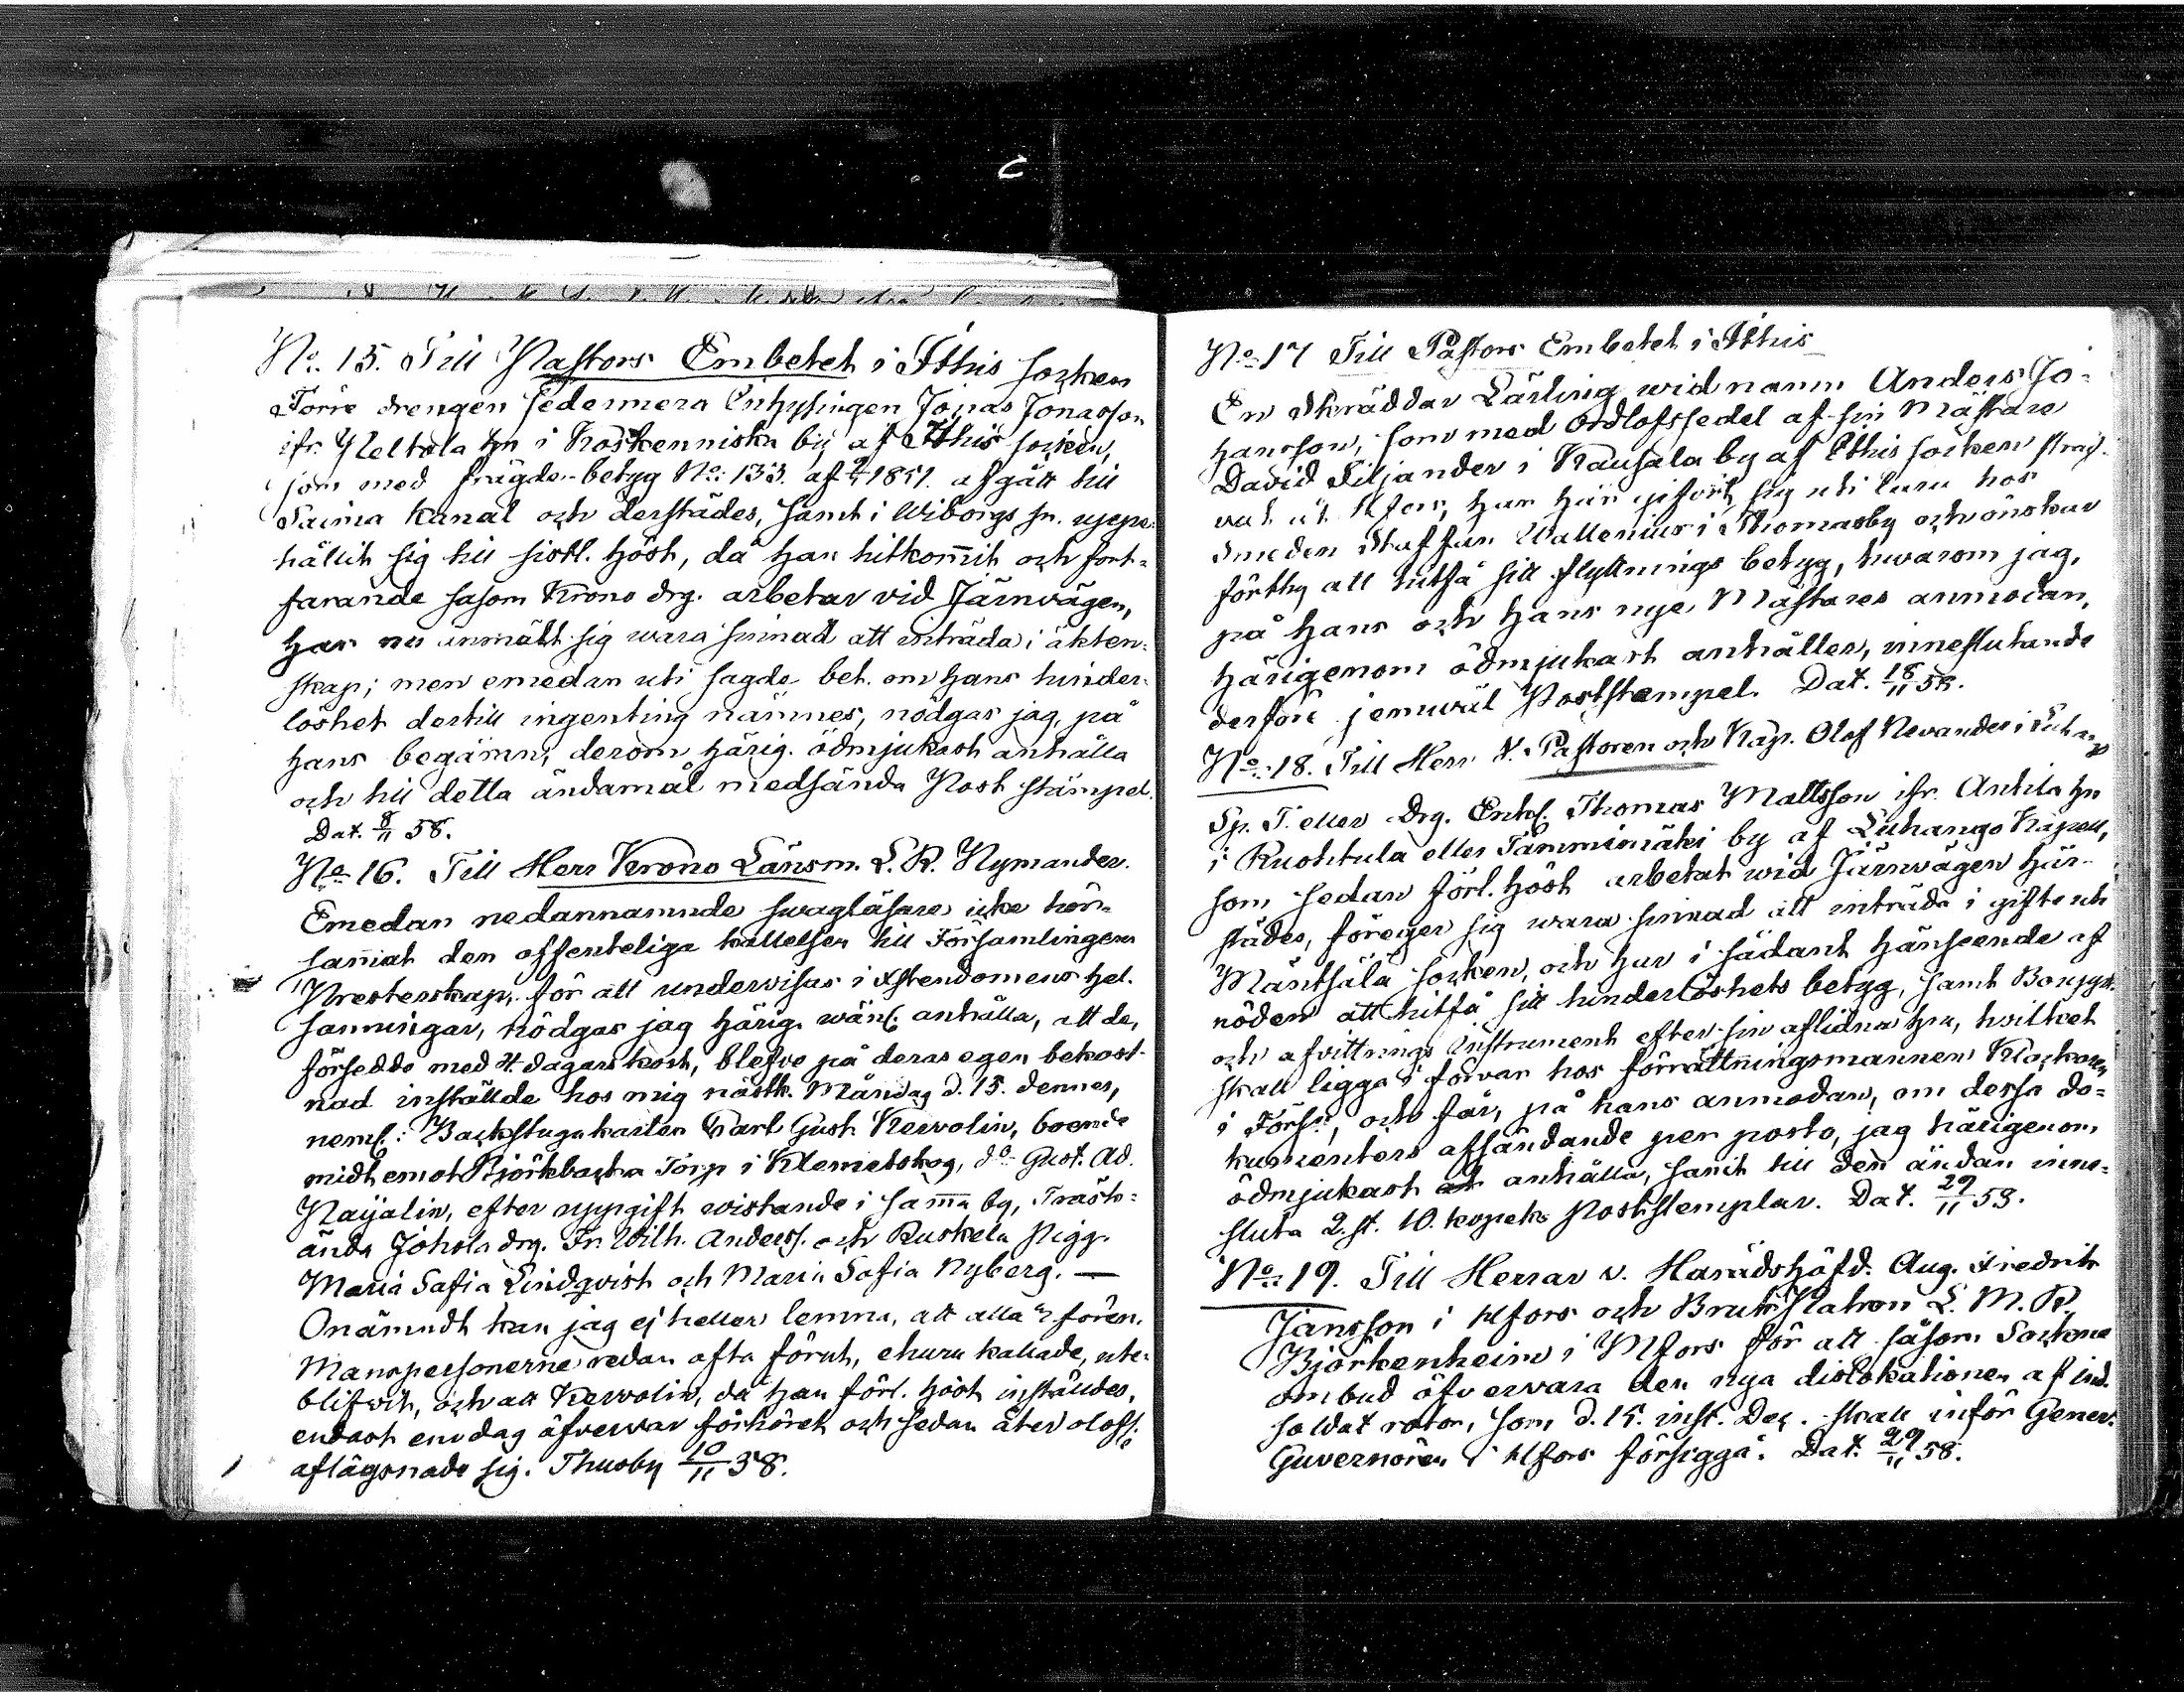 No. 15. Till Pastors Embetet i Itthis Socken
Förre drengen sedermera Inhysingen Jonas Jonasson
ifr. Heltola hn i Koskenniska by af Itthis socken,
som med frägde-betyg No: 133. af 1851. afgått till
Saima Kanal och derstädes, samt i Wiborgs sn. uppe-
hållit sig till sistl. höst, då han hitkom̅it och fort-
farande såsom Krono drg. arbetar vid Järnvägen,
har nu anmält sig wara sinnad att inträda i äkten-
skap; men emedan uti sagde bet. om hans hinder-
löshet dertill ingenting nämnes, nödgas jag, på
hans begäran, derom härig. ödmjukast anhålla
och till detta ändamål medsända Post stämpel.
Dat. 8/11 58.
No. 16. Till Herr Krono Länsm. L. R. Nymander.
Emedan nedannamnde swagläsare icke hör-
sam̅at den offenteliga kallelsen till Församlingens
Presterskap, för att underwisas i Xstendomens hel.
sanningar, nödgas jag härig. wänl. anhålla, att de,
försedde med 4 dagars kost, blefve på deras egen bekost-
nad inställde hos mig nästk. Måndag d. 15. dennes,
neml: Backstugukarlen Carl Gust. Kewolin, boende
midt emot Björkbacka Torp i Klemetskog, do Gust. Ad.
Najalin, efter uppgift wistande i sam̅a by, Träsk-
ända Johola drg. Fr. Wilh. Anderss. och Ruskela pig.
Maria Safia Lindqvist och Maria Safia Nyberg. —
Onämndt kan jag ej heller lemna, att alla 3 fören.
Manspersonerne redan ofta förut, ehuru kallade, ute-
blifvit, och att Kewolin, då han förl. höst inställdes,
endast en dag öfverwar förhöret och sedan åter olofl.
aflägsnade sig. Thusby 10/11 58.
No. 17 Till Pastors Embetet i Itthis
En Skräddar Lärling wid namn Anders Jo-
hansson, som med Ordlofssedel af sin Mästare
David Siljander i Kausala by af Itthis socken
åt Hfors, har här gifvit sig uti lära hos
Smeden Staffan Wallenius i Thomasby och önskar
förthy att hitfå sitt flyttnings betyg, hwarom jag,
på hans och hans nye Mästares anmodan,
härigenom ödmjukast anhåller, inneslutande
derföre jemwäl Poststempel. Dat. 18/11 58.
No. 18. Till Herr V. Pastoren och Kap. Olof Nevander i Luhango
Sp. T. eller Drg. Enkl. Thomas Mattsson ifr. Anttila hn
i Ruohtula eller Tamminiäki by af Luhango Kapell,
som sedan förl. höst arbetat wid Järnwägen här-
städes, föreger sig wara sinnad att inträda i gifte uti
Mäntsälä socken, och har i sådant hänseende af
nöden att hitfå sitt hinderlöshets betyg, samt Boupp.
och afvittrings Instrument efter sin aflidna hu, hvilket
skall ligga i förvar hos förrättningsmannen Klockaren
i Förs., och får, på hans anmodan, om dessa do-
kumenters afsändande per posto, jag härigenom
ödmjukast anhålla, sam̅t till den ändan inne-
sluta 2. st. 10. kopeks Poststemplar. Dat. 29/11 58.
No. 19. Till Herrar v. Häradshöfd. Aug. Fredrik
Jansson i Hfors och Bruks Patron L. M. R.
Björkenheim i Hfors för att såsom Sockne
ombud öfvervara den nya dislokationen af ind.
soldat rotor, som d. 15. inst. Dec. skall inför Gener.
Guvernören i Hfors försiggå. Dat. 29/11 58.